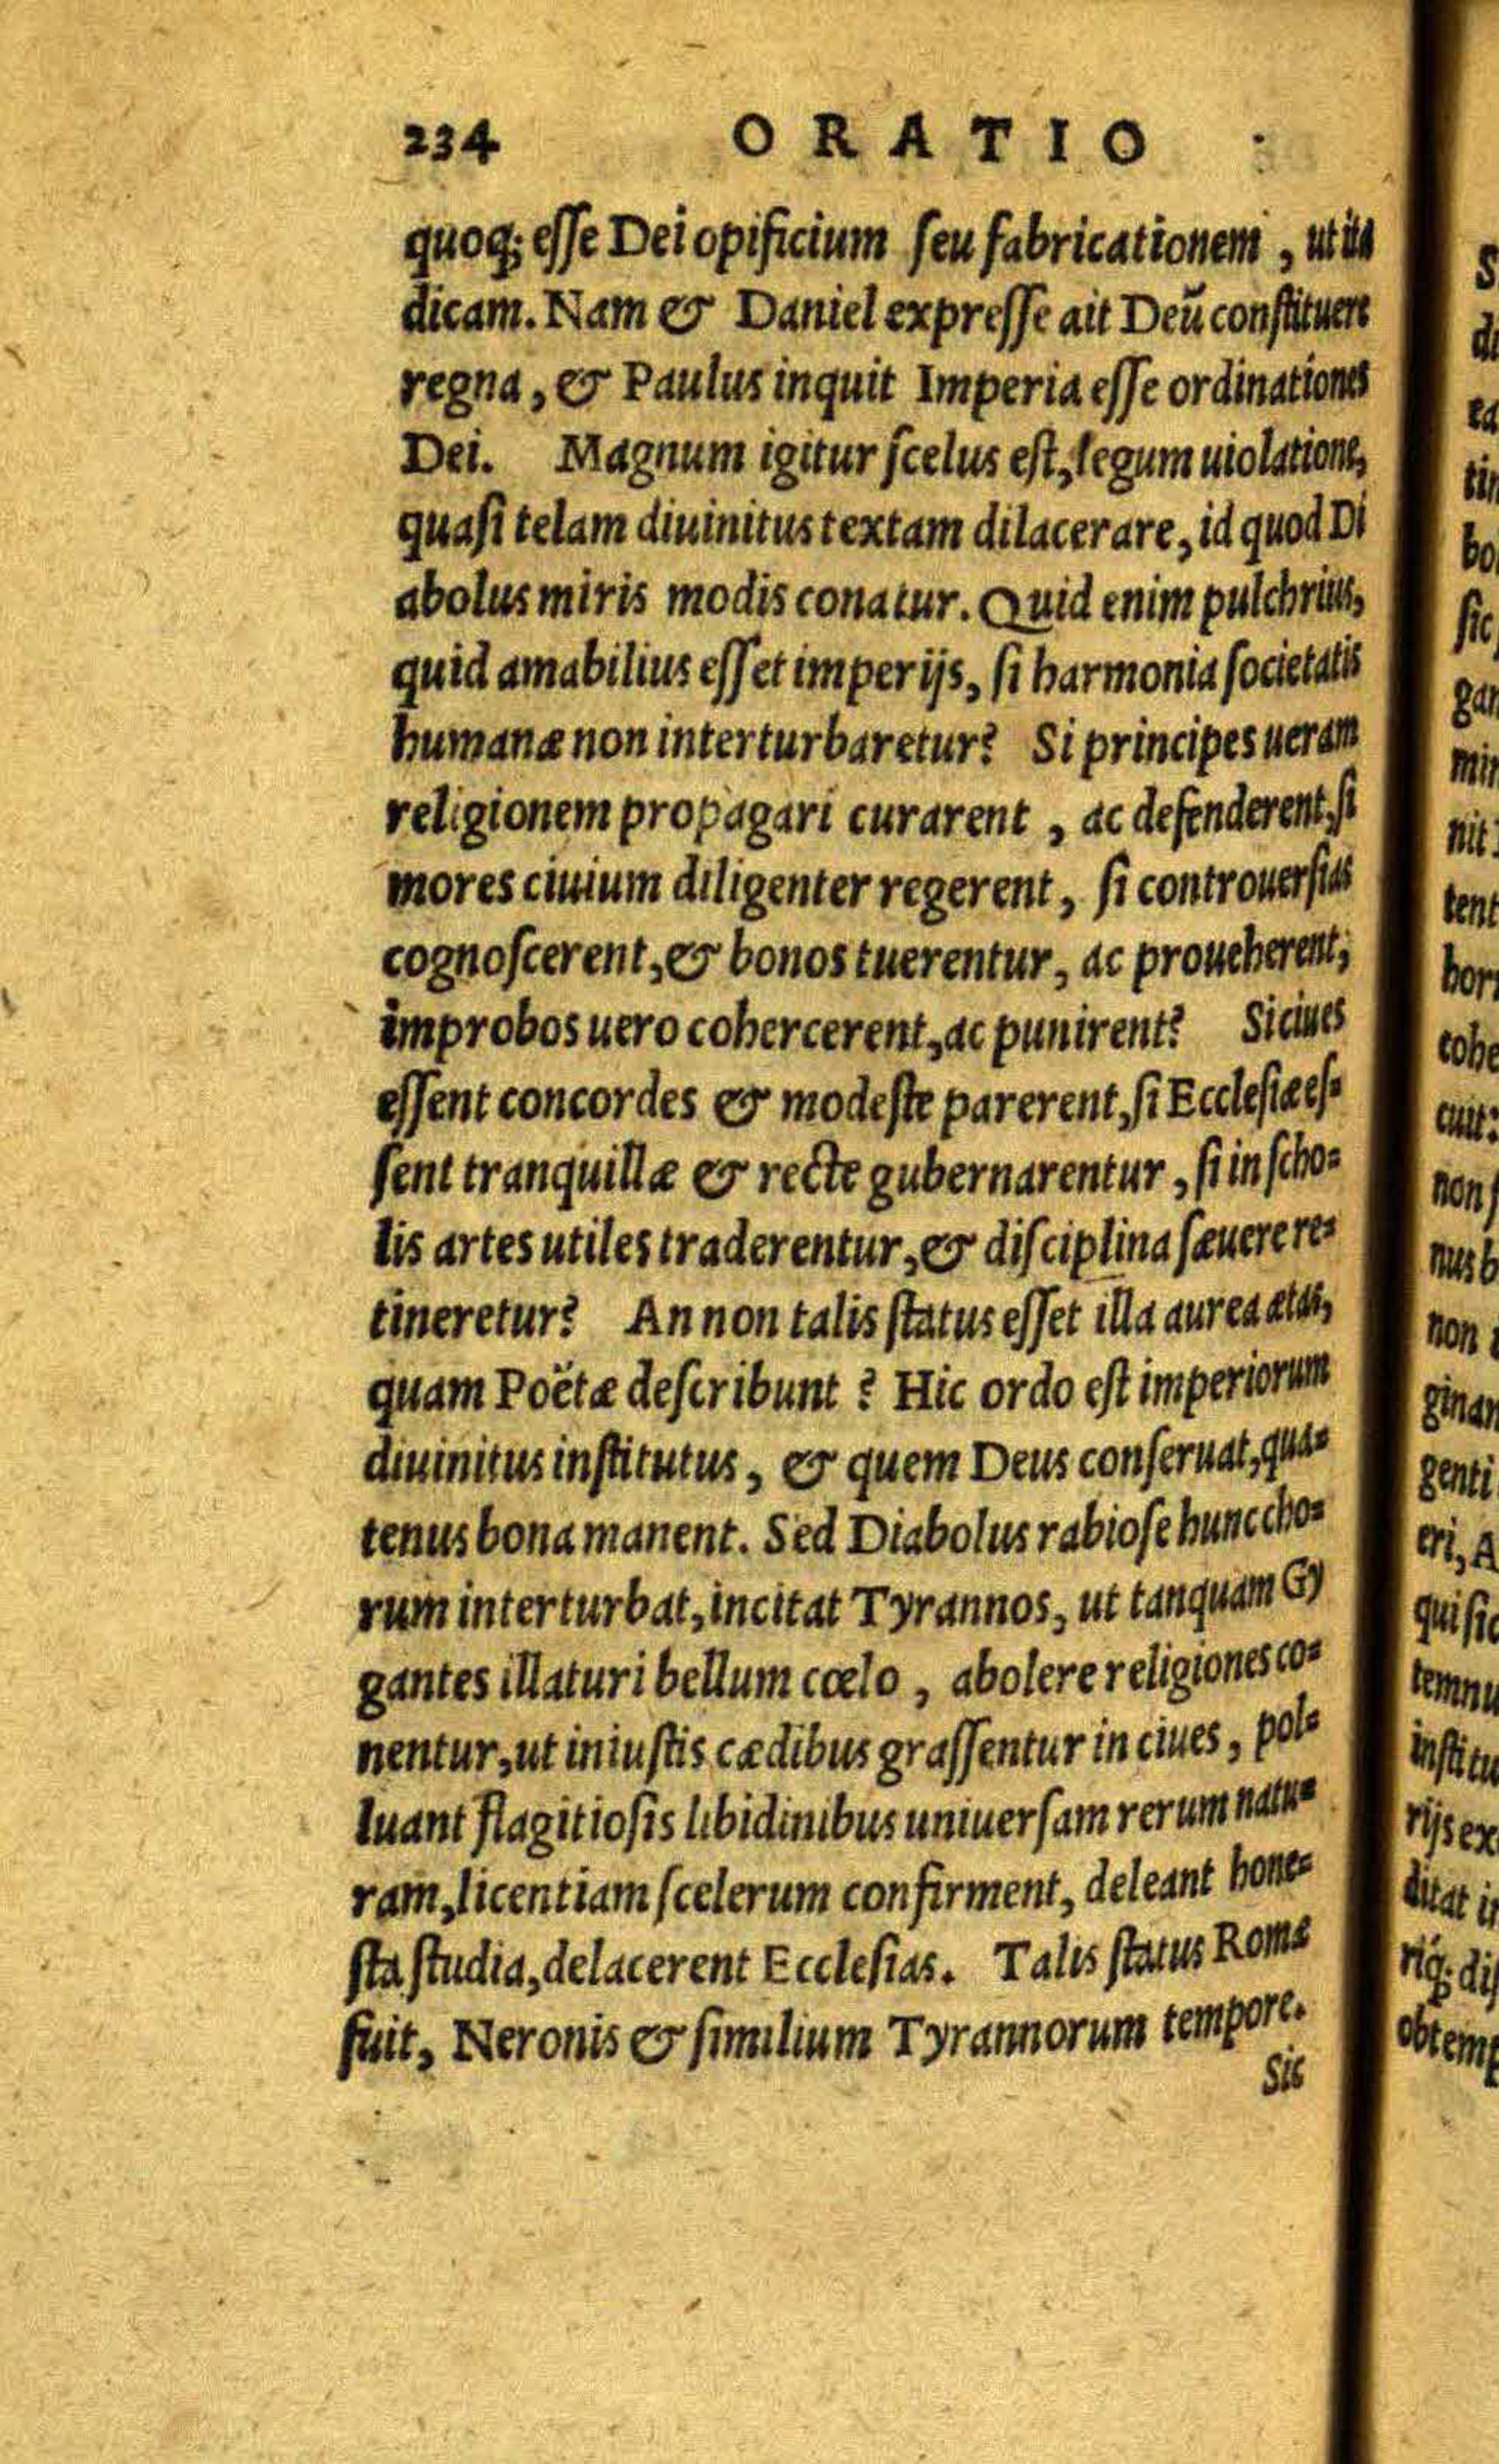 234 ORATIO
quoq; esse Dei opificium seu fabricationem, ut ita
dicam. Nam & Daniel expresse ait Deũ constituere
regna, & Paulus inquit Imperia esse ordinationes
Dei. Magnum igitur scelus est, legum uiolatione,
quasi telam diuinitus textam dilacerare, id quod Di
abolus miris modis conatur. Quid enim pulchrius,
quid amabilius esset imperijs, si harmonia societatis
humanæ non interturbaretur? Si principes ueram
religionem propagari curarent, ac defenderent, si
mores ciuium diligenter regerent, si controuersias
cognoscerent, & bonos tuerentur, ac proueherent,
improbos uero cohercerent, ac punirent? Si ciues
essent concordes & modeste parerent, si Ecclesiæ es=
sent tranquillæ & recte gubernarentur, si in scho=
lis artes utiles traderentur, & disciplina sæuere re=
tineretur? An non talis status esset illa aurea ætas,
quam Poëtæ describunt? Hic ordo est imperiorum
diuinitus institutus, & quem Deus conseruat, qua=
tenus bona manent. Sed Diabolus rabiose hunc cho=
rum interturbat, incitat Tyrannos, ut tanquam Gy
gantes illaturi bellum cœlo, abolere religiones co=
nentur, ut iniustis cædibus grassentur in ciues, pol=
luant flagitiosis libidinibus uniuersam rerum natu=
ram, licentiam scelerum confirment, deleant hone=
sta studia, delacerent Ecclesias. Talis status Romæ
fuit, Neronis & similium Tyrannorum tempore.
Sic